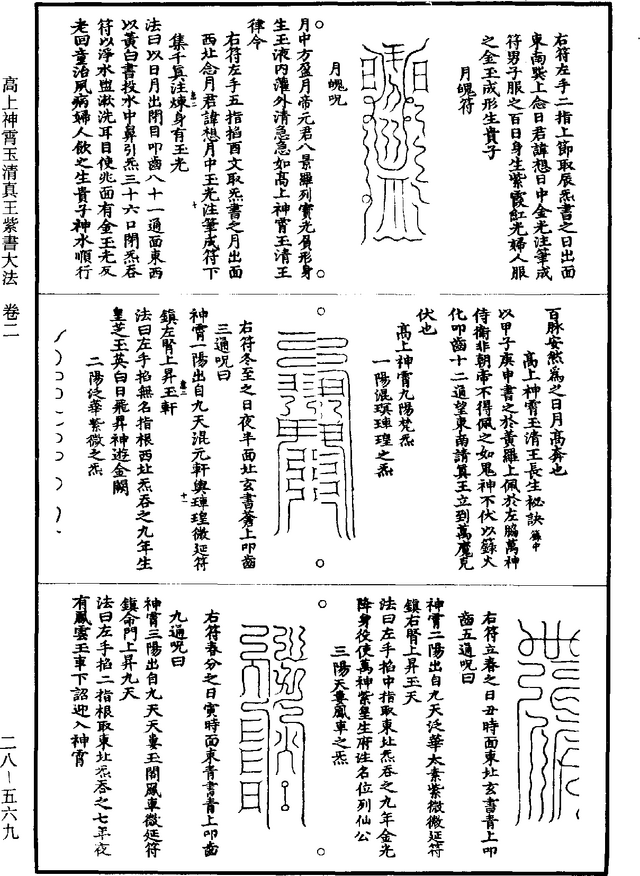 高上神霄玉清真王紫書大法 卷二
二八–五六九
右符左手二指上節取辰炁書之日出面
東南巽上念日君諱想日中金光注筆成
符男子服之百日身生紫霞紅光婦人服
之金玉成形生貴子
月魄符
月魄呪
月中方盈月帝元君八景羅列寶光
生玉液內灌外清急急如高上神霄玉清王
律令
右符左手五指掐酉文取炁書之月出面
西北念月君諱想月中玉光注筆成符下
集千真注煉身有玉光
法曰以日月出閉目叩齒八十一通面東西
以黃白書投水中鼻引炁三十六口閉炁吞
符以淨水盥漱洗耳目使兆面有金玉光反
老回童治風病婦人飲之生貴子神水順行
百脉安然為之日月高奔也
高上神霄玉清王長生祕訣
以甲子庚申書之於黃羅上佩於左脇萬神
侍衛非朝帝不得佩之如鬼神不伏以籙火
化叩齒十二通望東南請真王立到萬魔克
伏也
高上神霄九陽梵炁
一陽混瑱琿瑝之炁
右符冬至之日夜半面北玄書蒼上叩齒
三通呪曰
神霄一陽出自九天混元軒輿琿瑝微延符
鎮左腎上昇玉軒
法曰左手掐無名指根西北炁吞之九年生
皇芝玉英白日飛昇神遊金闕
二陽泛華紫微之炁
右符立春之日丑時面東北玄書青上叩
齒五通呪曰
神霄二陽出自九天泛華太素紫微微延符
鎮右腎上昇玉天
法曰左手掐中指取東北炁吞之九年金光
降身役使萬神紫皇生府姓名位列仙公
三陽天婁鳳車之炁
右符春分之日寅時面東青書青上叩齒
九通呪曰
神霄三陽出自九天天婁玉閣鳳車微延符
鎮命門上昇九天
法曰左手掐二指根取東北炁吞之七年夜
有鳳雲玉車下詔迎入神霄